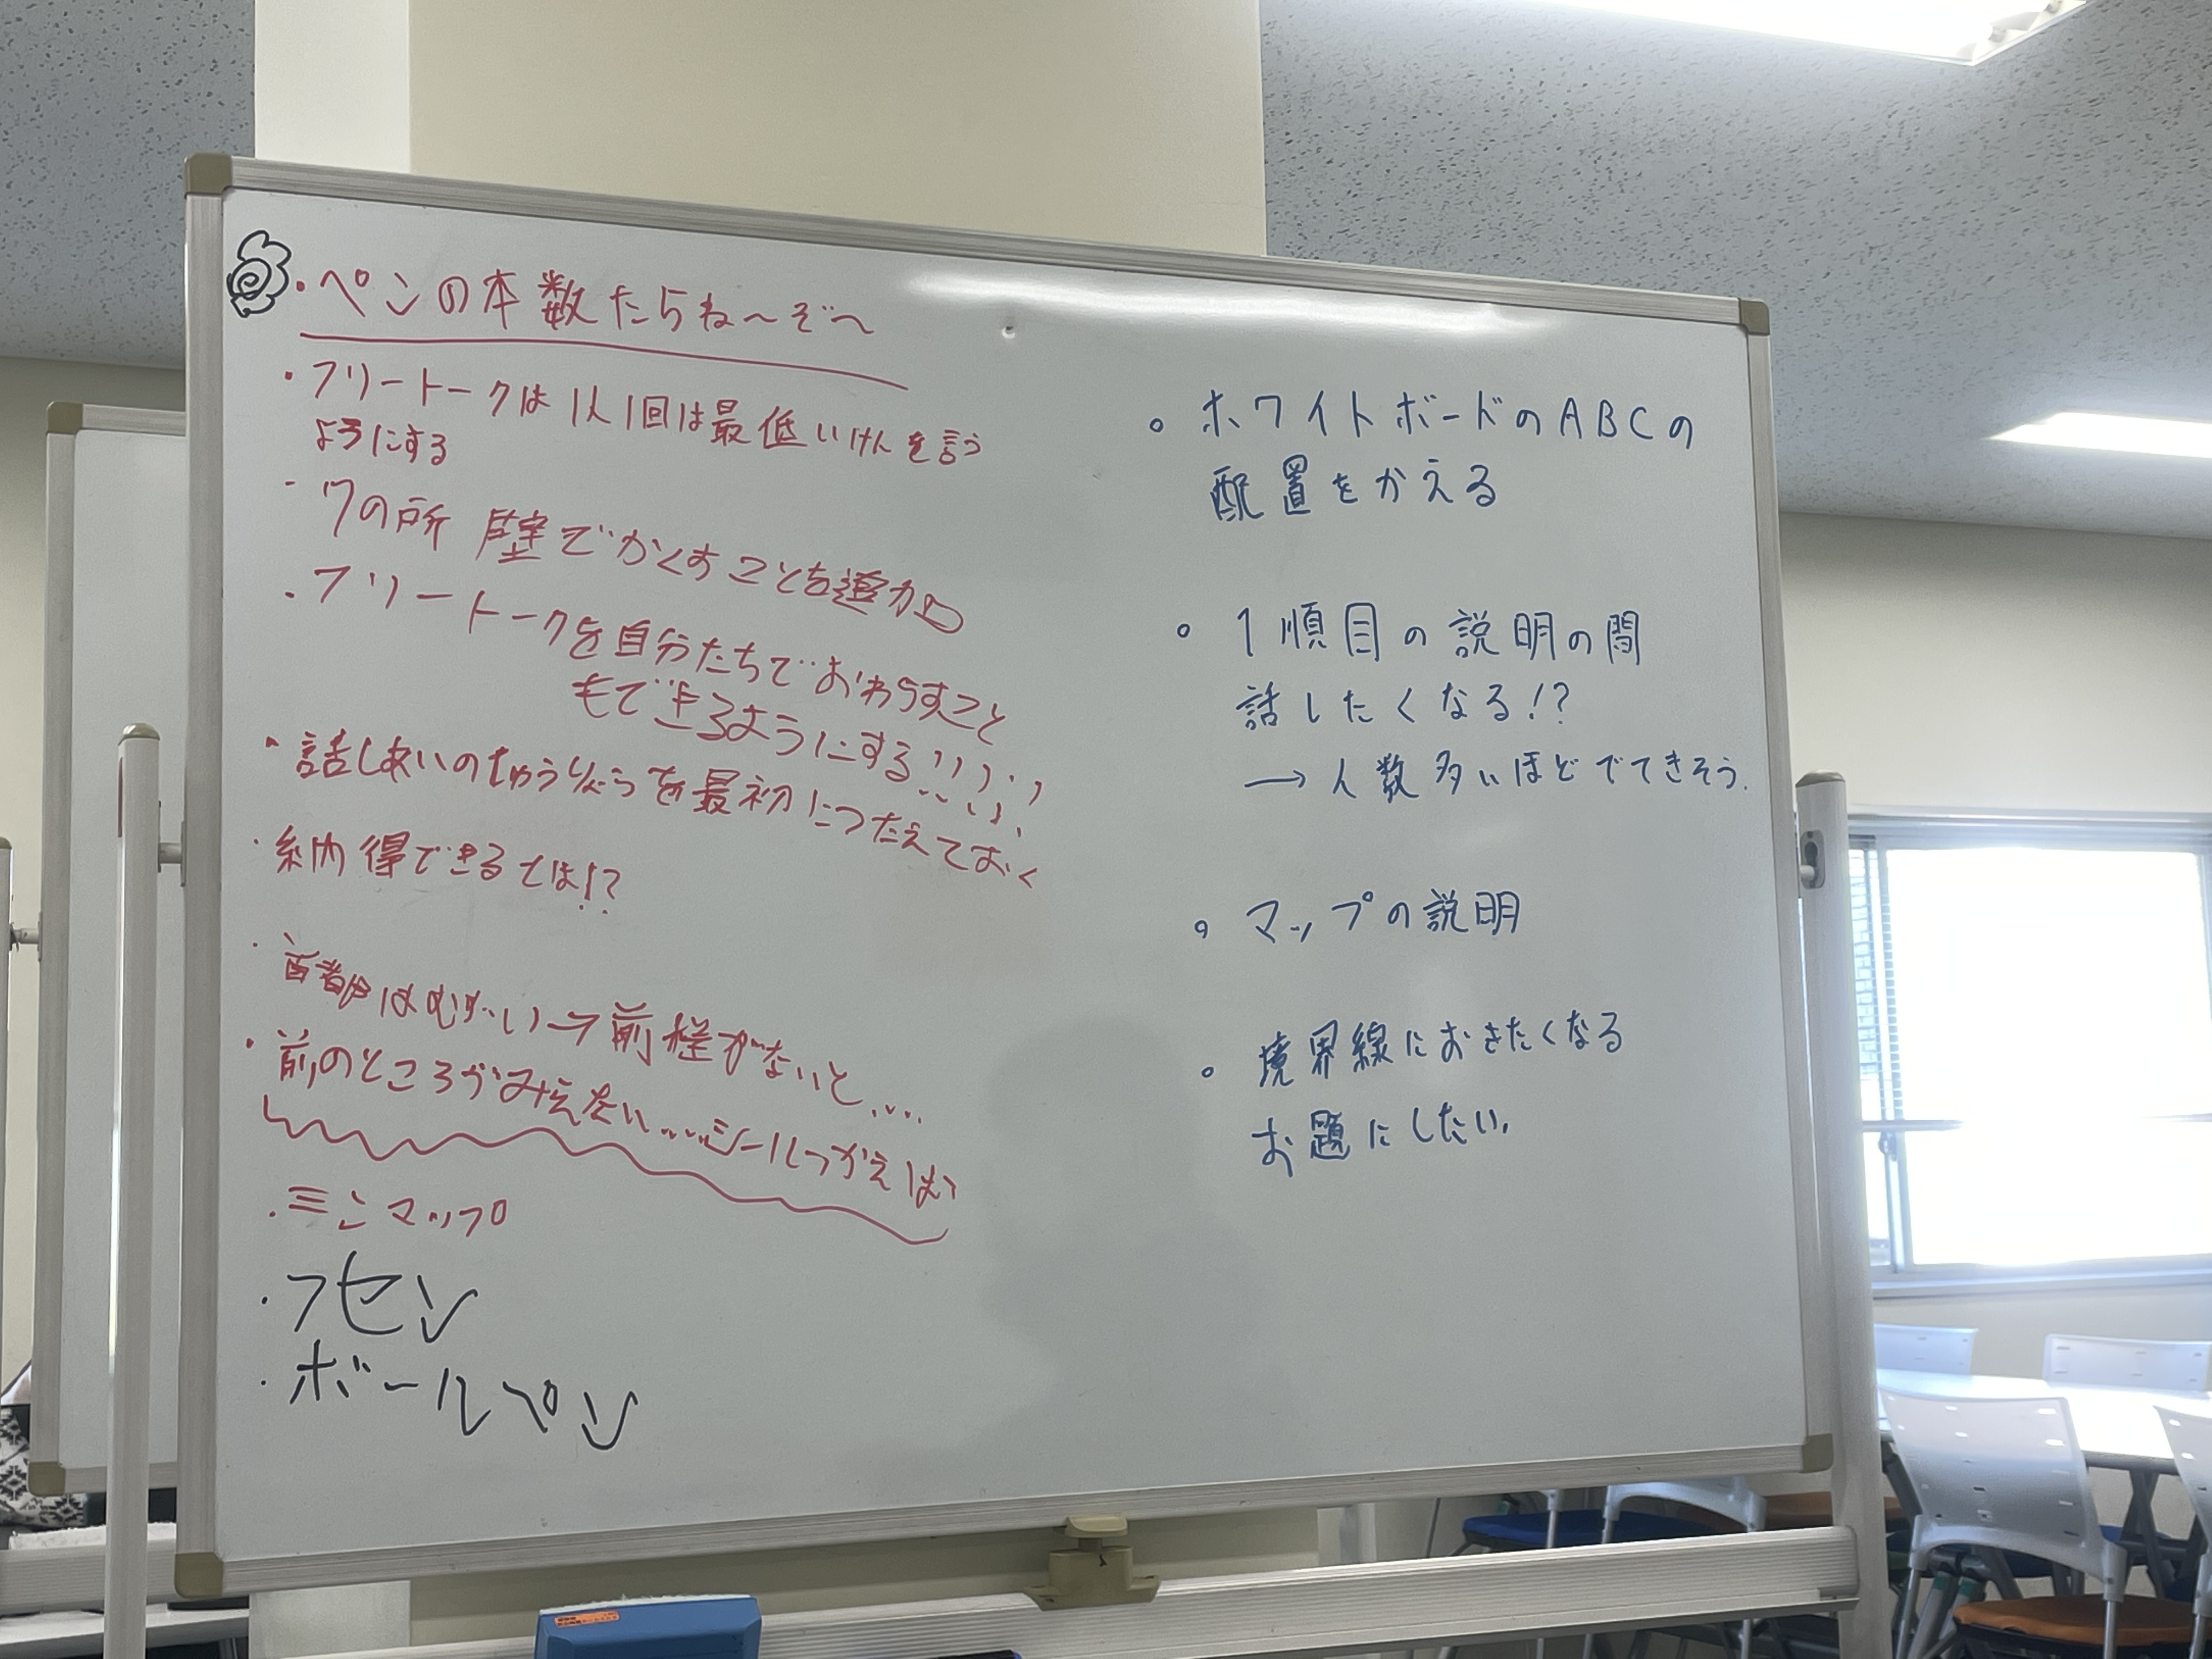 ・ペンの本数たらね〜ぞ〜
・フリートークは1人1回は最低いけんを言う
ようにする
・ワの所 壁でかくすことを追加
・フリートークを自分たちでおわらすこと
もできるようにする!!!!!
・話しあいのちゅうりょうを最初につたえておく
・納得できるとは!?
・首都はむずい→前提がないと....
・前のところがみえない....シールつかえば?
・ミニマップ
・フセン
・ボールペン
○ ホワイトボードのABCの
配置をかえる
○ 1順目の説明の間
話したくなる!?
→人数多いほどでてきそう.
○ マップの説明
○ 境界線におきたくなる
お題にしたい.